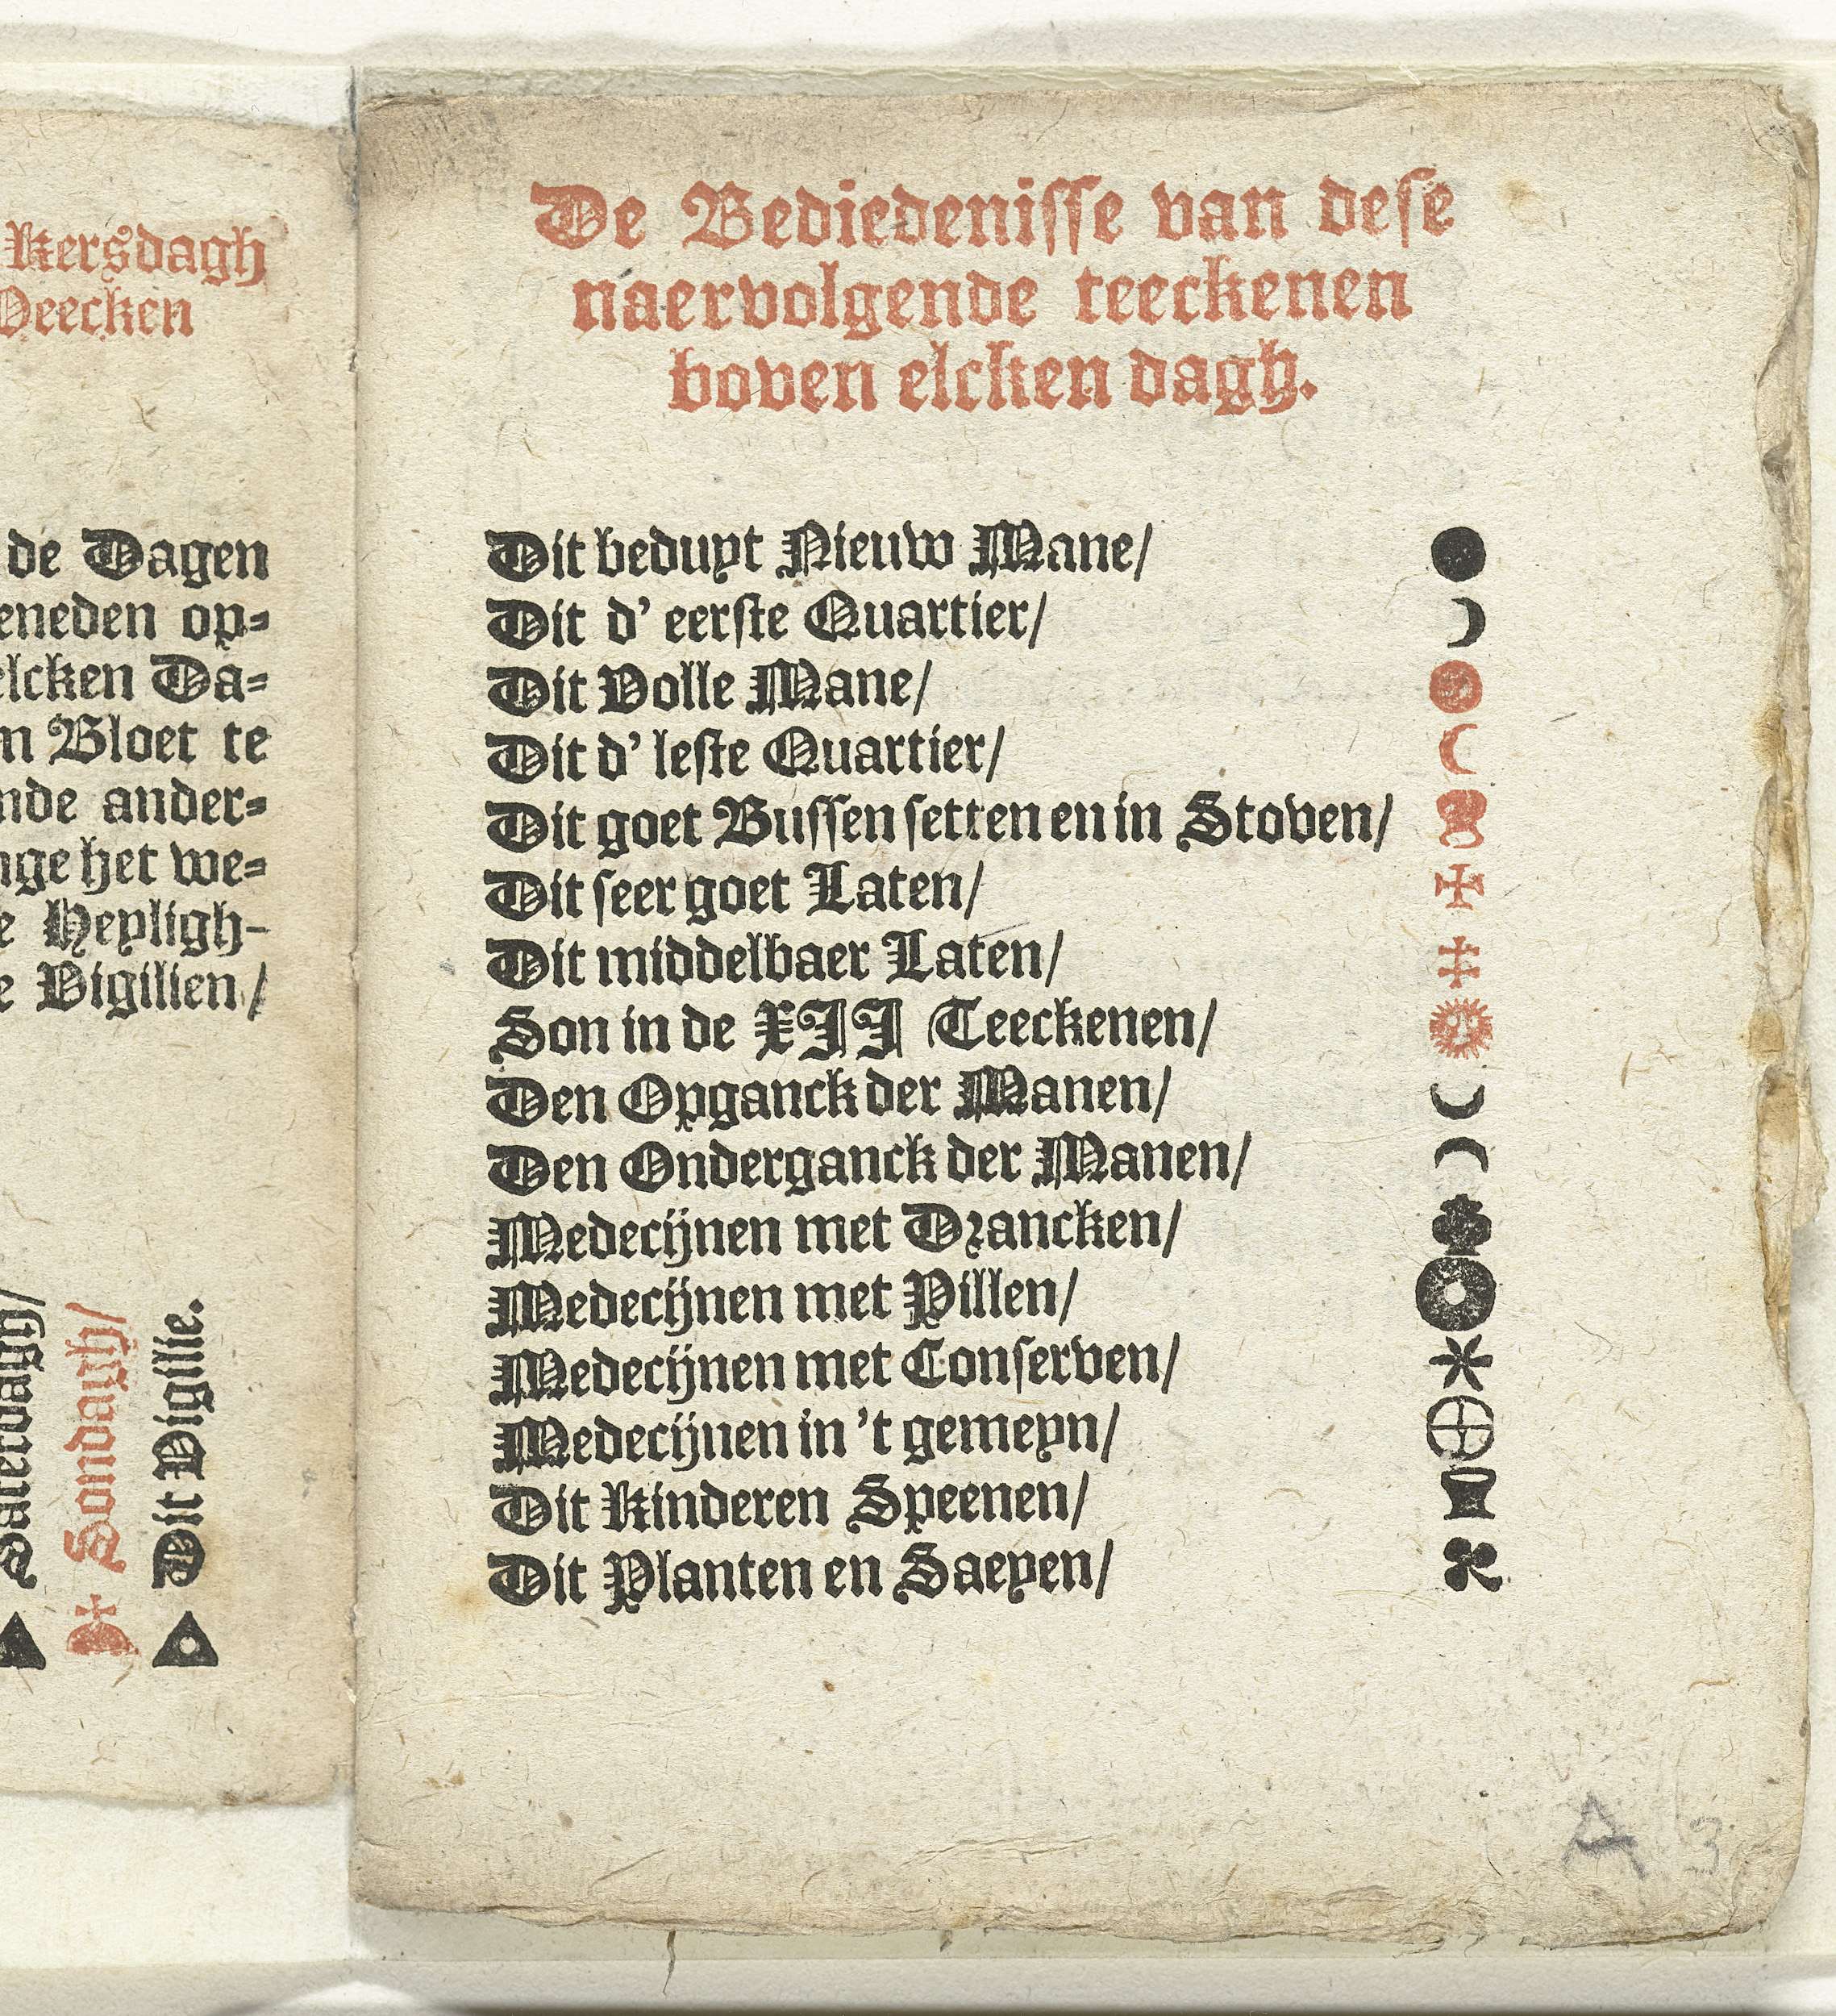 Kersdagh
Veecken
de Dagen
eneden op⸗
elcken Da⸗
n Bloet te
nde ander⸗
nge het we⸗
e Heyligh-
e Vigilien/
Saterdagh/
Sondagh/
Dit Vigilie.
De Bediedenisse van dese
naervolgende teeckenen
boven elcken dagh.
Dit beduyt Nieuw Mane/
Dit d' eerste Quartier/
Dit Volle Mane/
Dit d' leste Quartier/
Dit goet Bussen setten en in Stoven/
Dit seer goet Laten/
Dit middelbaer Laten/
Son in de XII Teeckenen/
Den Opganck der Manen/
Den Onderganck der Manen/
Medecijnen met Drancken/
Medecijnen met Pillen/
Medecijnen met Conserven/
Medecijnen in 't gemeyn/
Dit Kinderen Speenen/
Dit Planten en Saeyen/
A 3